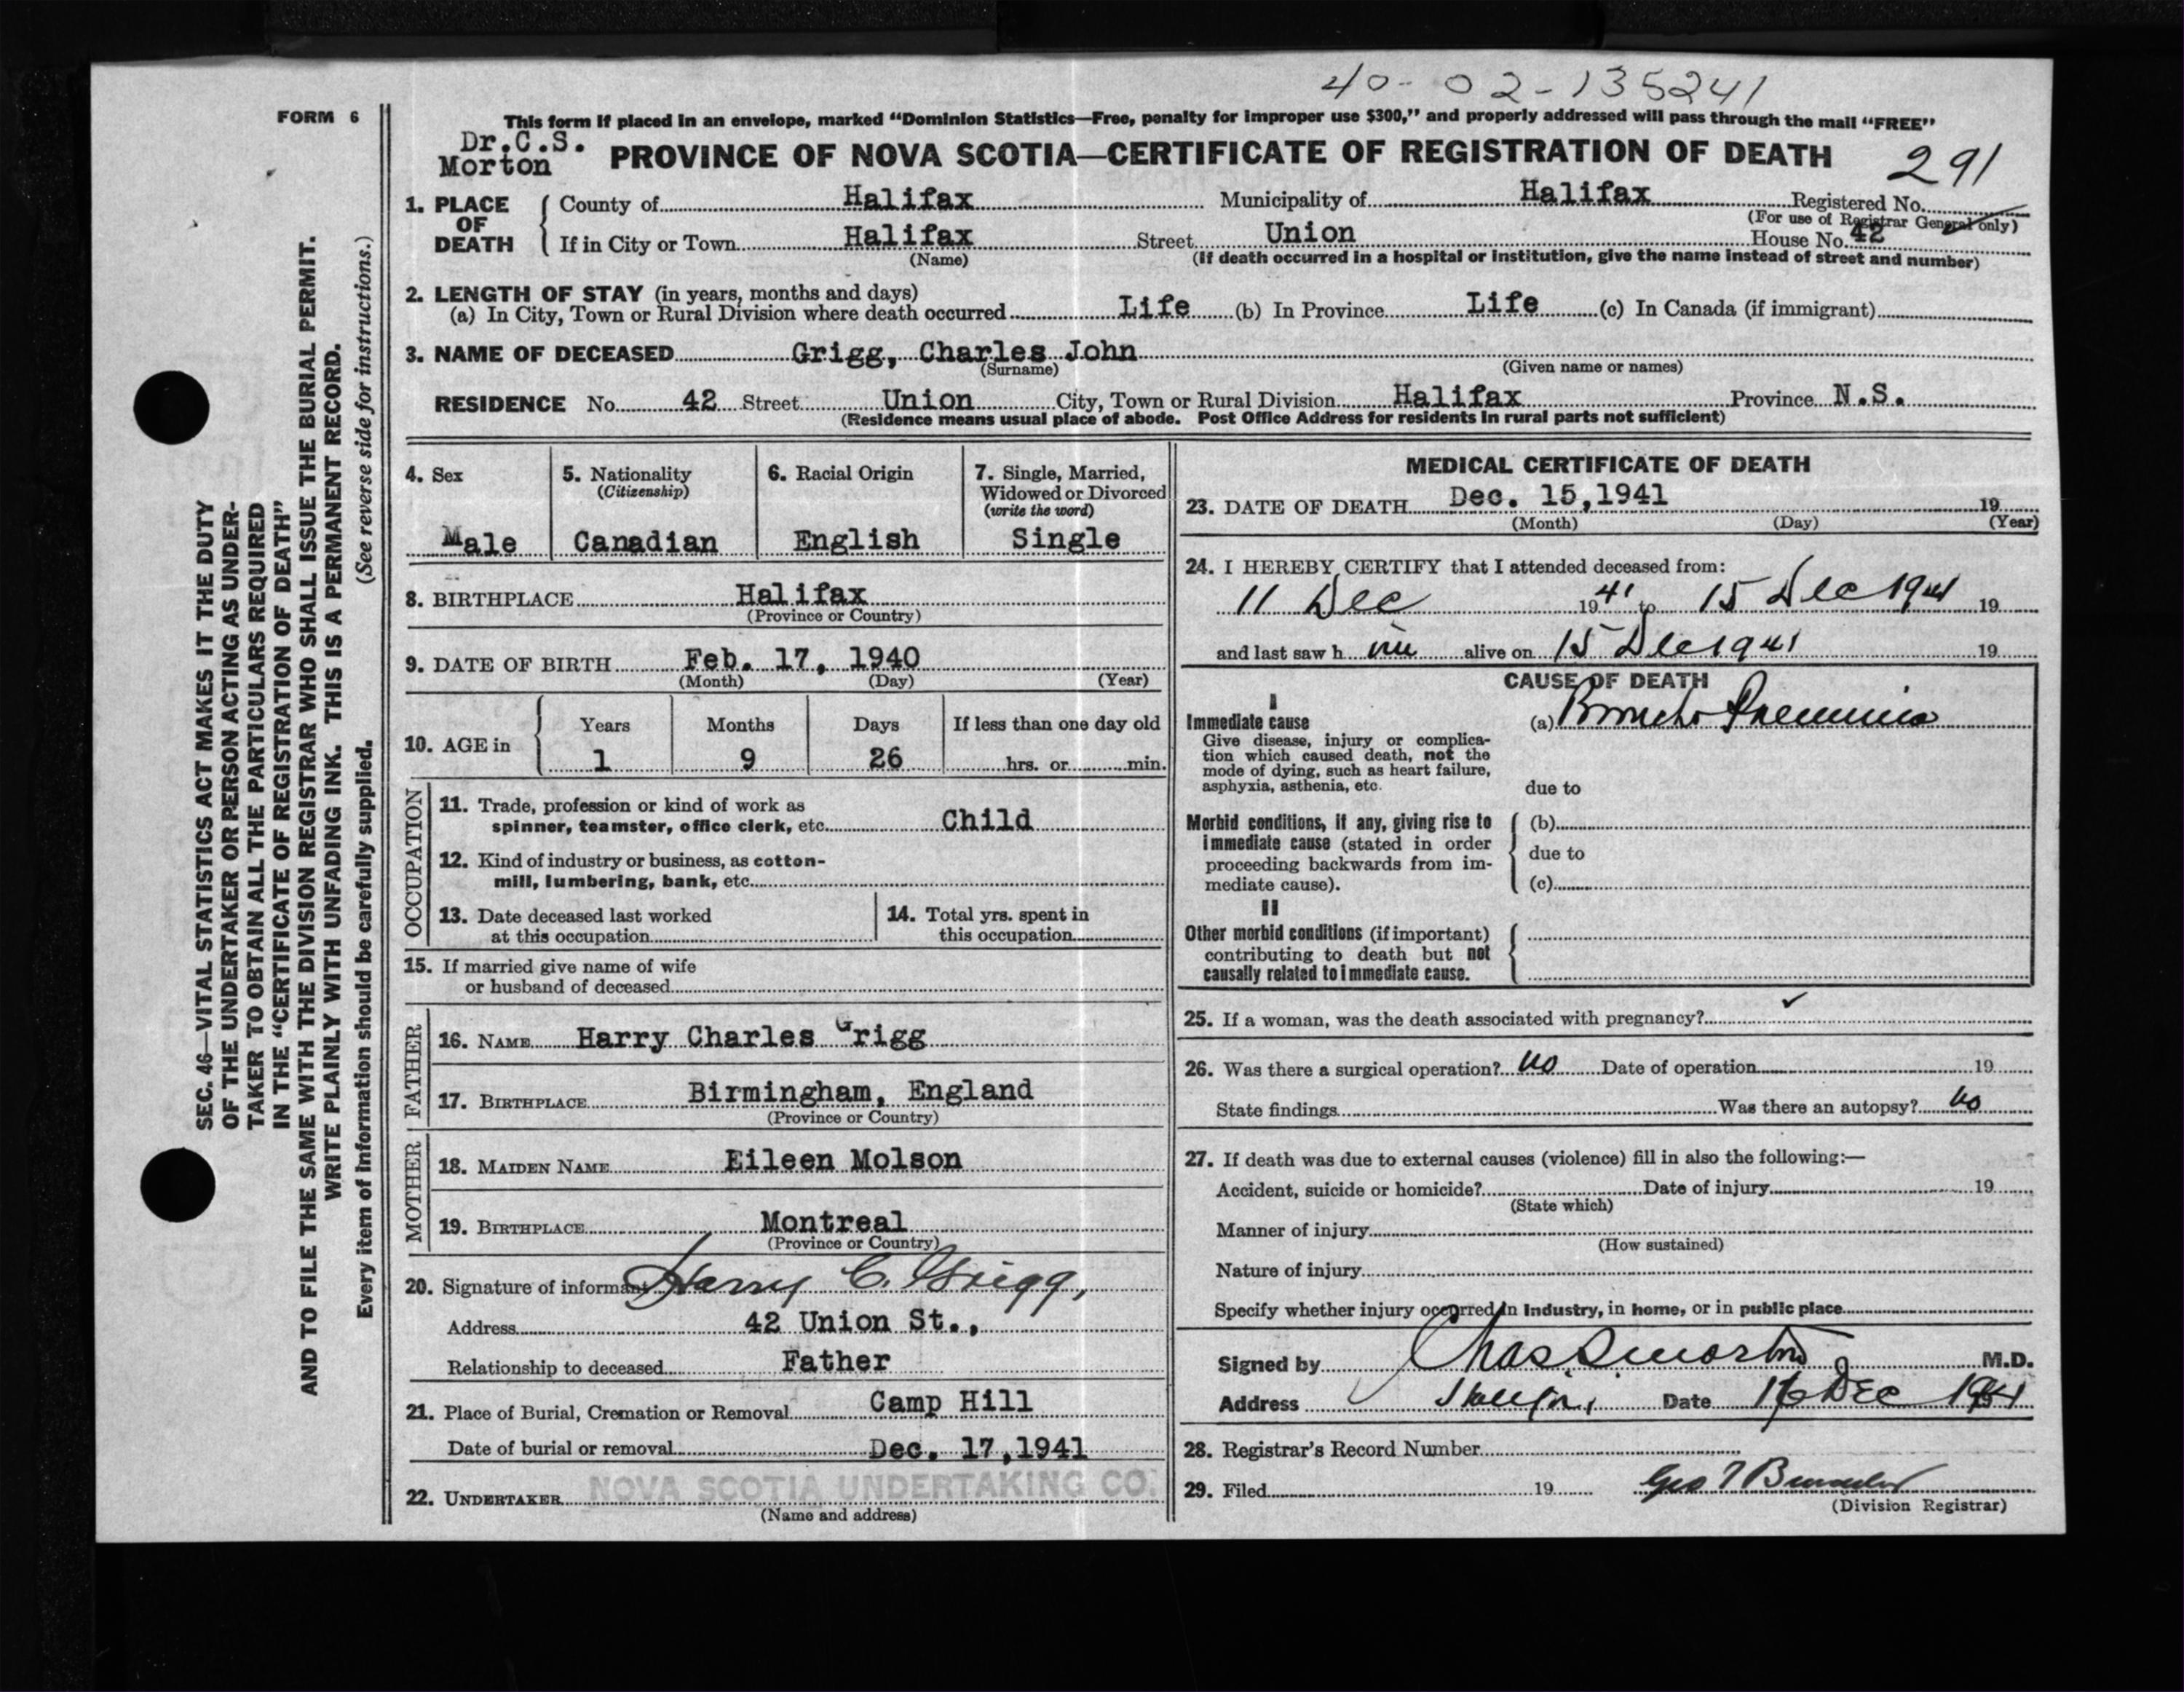 40-02-135241
FORM 6
This form if placed in an envelope, marked “Dominion Statistics—Free, penalty for improper use $300,” and properly addressed will pass through the mail “FREE”
Dr.C.S.
Morton
PROVINCE OF NOVA SCOTIA—CERTIFICATE OF REGISTRATION OF DEATH
291
1. PLACE OF DEATH
County of Halifax Municipality of Halifax Registered No.
(For use of Registrar General only)
If in City or Town Halifax Street Union House No. 42
(Name) (If death occurred in a hospital or institution, give the name instead of street and number)
2. LENGTH OF STAY (in years, months and days)
(a) In City, Town or Rural Division where death occurred Life (b) In Province Life (c) In Canada (if immigrant)
3. NAME OF DECEASED Grigg, Charles John
(Surname) (Given name or names)
RESIDENCE No. 42 Street Union City, Town or Rural Division Halifax Province N.S.
(Residence means usual place of abode. Post Office Address for residents in rural parts not sufficient)
4. Sex
Male
5. Nationality
(Citizenship)
Canadian
6. Racial Origin
English
7. Single, Married,
Widowed or Divorced
(write the word)
Single
8. BIRTHPLACE Halifax
(Province or Country)
9. DATE OF BIRTH Feb. 17, 1940
(Month) (Day) (Year)
10. AGE in
Years Months Days If less than one day old
1 9 26 hrs. or min.
OCCUPATION
11. Trade, profession or kind of work as
spinner, teamster, office clerk, etc. Child
12. Kind of industry or business, as cotton-
mill, lumbering, bank, etc.
13. Date deceased last worked
at this occupation
14. Total yrs. spent in
this occupation
15. If married give name of wife
or husband of deceased
FATHER
16. NAME Harry Charles Grigg
17. BIRTHPLACE Birmingham, England
(Province or Country)
MOTHER
18. MAIDEN NAME Eileen Molson
19. BIRTHPLACE Montreal
(Province or Country)
20. Signature of informant Harry C. Grigg,
Address 42 Union St.,
Relationship to deceased Father
21. Place of Burial, Cremation or Removal Camp Hill
Date of burial or removal Dec. 17,1941
22. UNDERTAKER NOVA SCOTIA UNDERTAKING CO.
(Name and address)
MEDICAL CERTIFICATE OF DEATH
23. DATE OF DEATH Dec. 15,1941 19
(Month) (Day) (Year)
24. I HEREBY CERTIFY that I attended deceased from:
11 Dec 1941 to 15 Dec 1941 19
and last saw h im alive on 15 Dec 1941 19
CAUSE OF DEATH
I
Immediate cause
(a) Broncho Pneumonia
Give disease, injury or complica-
tion which caused death, not the
mode of dying, such as heart failure,
asphyxia, asthenia, etc.
due to
Morbid conditions, if any, giving rise to
immediate cause (stated in order
proceeding backwards from im-
mediate cause).
(b)
due to
(c)
II
Other morbid conditions (if important)
contributing to death but not
causally related to immediate cause.
25. If a woman, was the death associated with pregnancy? ✓
26. Was there a surgical operation? no Date of operation 19
State findings Was there an autopsy? no
27. If death was due to external causes (violence) fill in also the following:—
Accident, suicide or homicide? Date of injury 19
(State which)
Manner of injury
(How sustained)
Nature of injury
Specify whether injury occurred in industry, in home, or in public place
Signed by Chas S Morton M.D.
Address Halifax, Date 16 Dec 1941
28. Registrar's Record Number
29. Filed 19 Geo
(Division Registrar)
SEC. 46—VITAL STATISTICS ACT MAKES IT THE DUTY
OF THE UNDERTAKER OR PERSON ACTING AS UNDER-
TAKER TO OBTAIN ALL THE PARTICULARS REQUIRED
IN THE “CERTIFICATE OF REGISTRATION OF DEATH”
AND TO FILE THE SAME WITH THE DIVISION REGISTRAR WHO SHALL ISSUE THE BURIAL PERMIT.
WRITE PLAINLY WITH UNFADING INK. THIS IS A PERMANENT RECORD.
Every item of information should be carefully supplied. (See reverse side for instructions.)